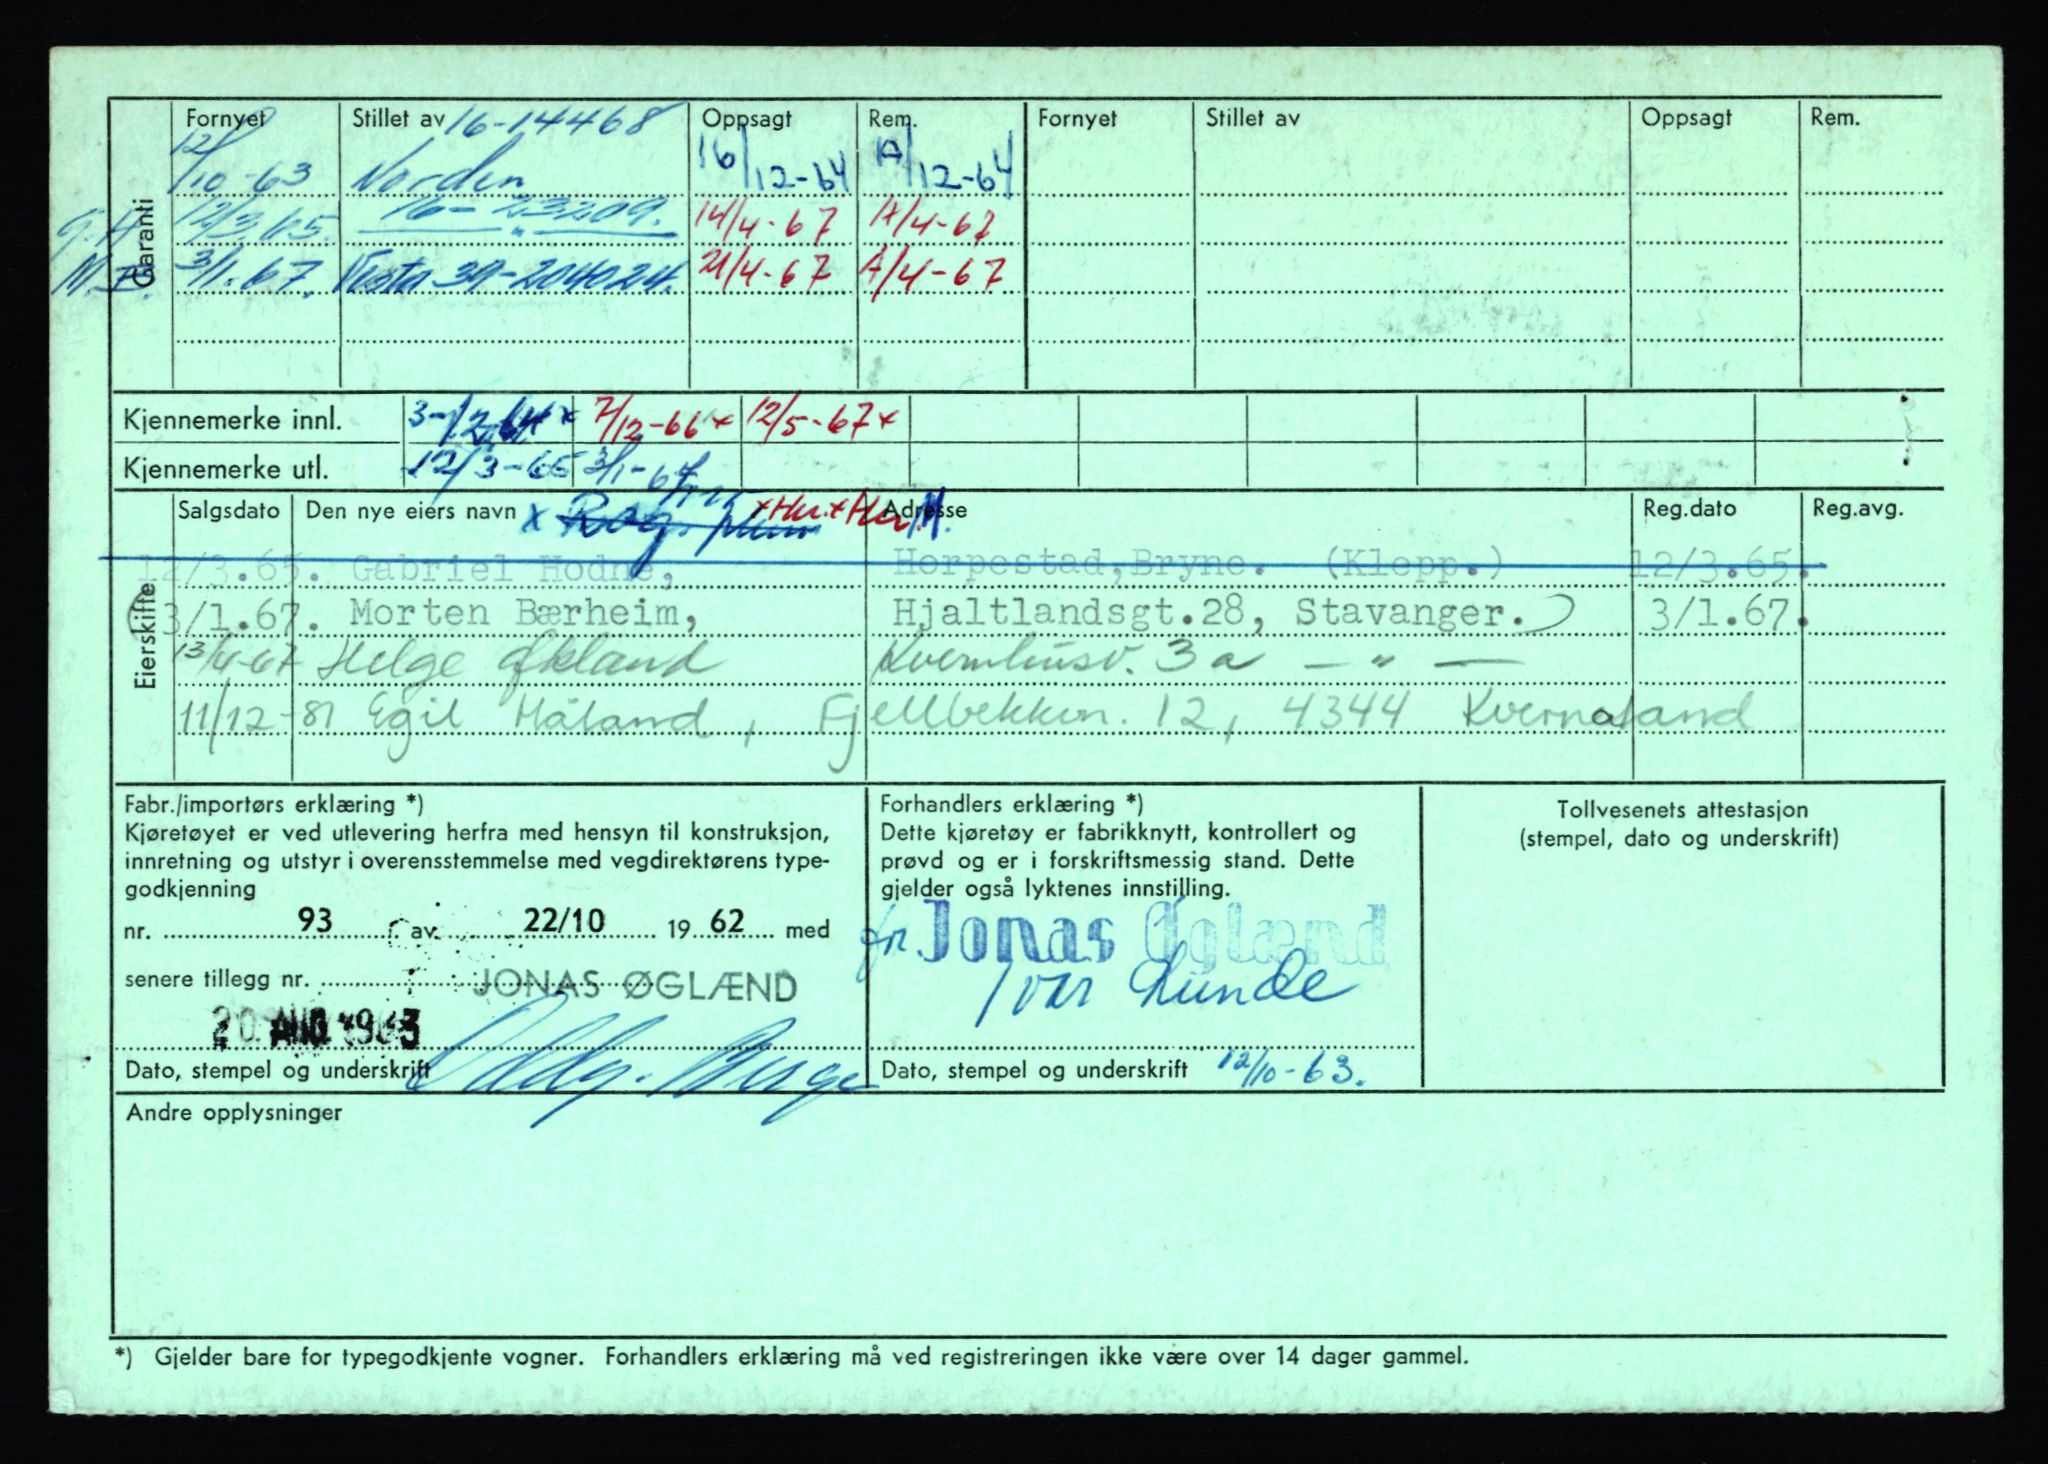 Garanti
Fornyet Stillet av 16-14468 Oppsagt Rem. Fornyet Stillet av Oppsagt Rem.
12/10-63 Norden 16/12-64 /12-64
G.H. 12/3.65. 16-23209. 14/4-67 /4-67
M.B. 3/1.67. Vesta 39-204024. 21/4-67 /4-67
Kjennemerke innl. 3-12-64x 7/12-66x 12/5-67x
Kjennemerke utl. 12/3-65 3/1-67
Eierskifte
Salgsdato Den nye eiers navn x Rog. Adresse Reg.dato Reg.avg.
12/3.65. Gabriel Hodne, Horpestad,Bryne. (Klepp.) 12/3.65.
3/1.67. Morten Bærheim, Hjaltlandsgt.28, Stavanger. 3/1.67.
13/4-67 Helge Økland Kvernhusv. 3a — " —
11/12-81 Egil Håland, Fjellbekkvn. 12, 4344 Kvernaland
Fabr./importørs erklæring *)
Kjøretøyet er ved utlevering herfra med hensyn til konstruksjon,
innretning og utstyr i overensstemmelse med vegdirektørens type-
godkjenning
nr. 93 av 22/10 19 62 med
senere tillegg nr. JONAS ØGLÆND
20. AUG. 1963
Dato, stempel og underskrift
Forhandlers erklæring *)
Dette kjøretøy er fabrikknytt, kontrollert og
prøvd og er i forskriftsmessig stand. Dette
gjelder også lyktenes innstilling.
for Jonas Øglænd
Ivar Lunde
Dato, stempel og underskrift 12/10-63.
Tollvesenets attestasjon
(stempel, dato og underskrift)
Andre opplysninger
*) Gjelder bare for typegodkjente vogner. Forhandlers erklæring må ved registreringen ikke være over 14 dager gammel.